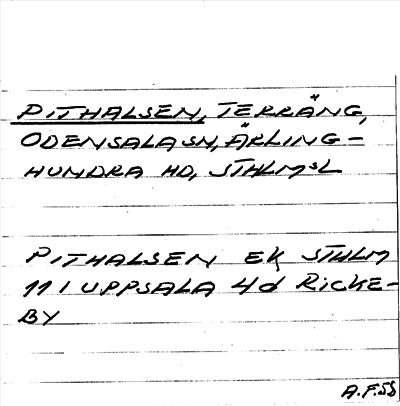 PITHALSEN, TERRÄNG,
ODENSALA SN, ÄRLING-
HUNDRA HD, STHLMSL
PITHALSEN EK STHLM
11 I UPPSALA 4d RICKE-
BY
A.F.55